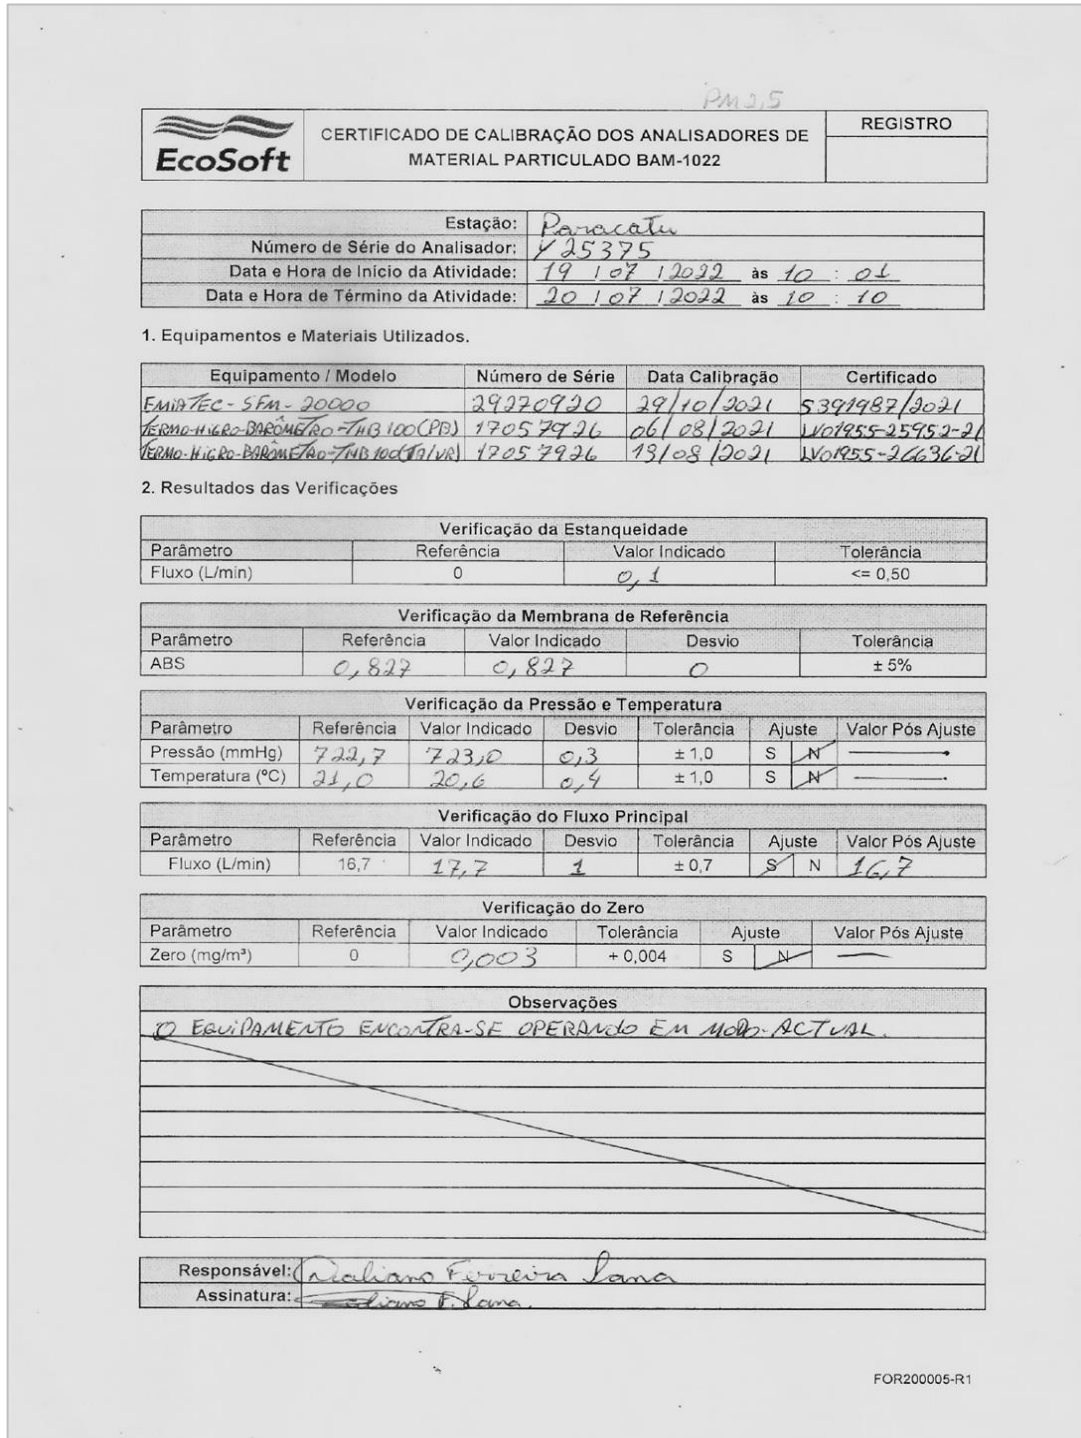 PM 2,5
EcoSoft
CERTIFICADO DE CALIBRAÇÃO DOS ANALISADORES DE
MATERIAL PARTICULADO BAM-1022
REGISTRO
Estação: Paracatu
Número de Série do Analisador: Y25375
Data e Hora de Início da Atividade: 19 / 07 / 2022 às 10 : 01
Data e Hora de Término da Atividade: 20 / 07 / 2022 às 10 : 10
1. Equipamentos e Materiais Utilizados.
Equipamento / Modelo Número de Série Data Calibração Certificado
EMIATEC - SFM - 20000 29270920 29/10/2021 5391987/2021
TERMO-HIGRO-BARÔMETRO-THB 100(PB) 17057926 06/08/2021 LV01955-25952-21
TERMO-HIGRO-BARÔMETRO-THB 100(TA/UR) 17057926 13/08/2021 LV01955-26636-21
2. Resultados das Verificações
Verificação da Estanqueidade
Parâmetro Referência Valor Indicado Tolerância
Fluxo (L/min) 0 0,1 <= 0,50
Verificação da Membrana de Referência
Parâmetro Referência Valor Indicado Desvio Tolerância
ABS 0,827 0,827 0 ± 5%
Verificação da Pressão e Temperatura
Parâmetro Referência Valor Indicado Desvio Tolerância Ajuste Valor Pós Ajuste
Pressão (mmHg) 722,7 723,0 0,3 ± 1,0 S N
Temperatura (ºC) 21,0 20,6 0,4 ± 1,0 S N
Verificação do Fluxo Principal
Parâmetro Referência Valor Indicado Desvio Tolerância Ajuste Valor Pós Ajuste
Fluxo (L/min) 16,7 17,7 1 ± 0,7 S N 16,7
Verificação do Zero
Parâmetro Referência Valor Indicado Tolerância Ajuste Valor Pós Ajuste
Zero (mg/m³) 0 0,003 + 0,004 S N
Observações
O EQUIPAMENTO ENCONTRA-SE OPERANDO EM MODO ACTUAL.
Responsável: Ferreira Lana
Assinatura: F. Lana.
FOR200005-R1